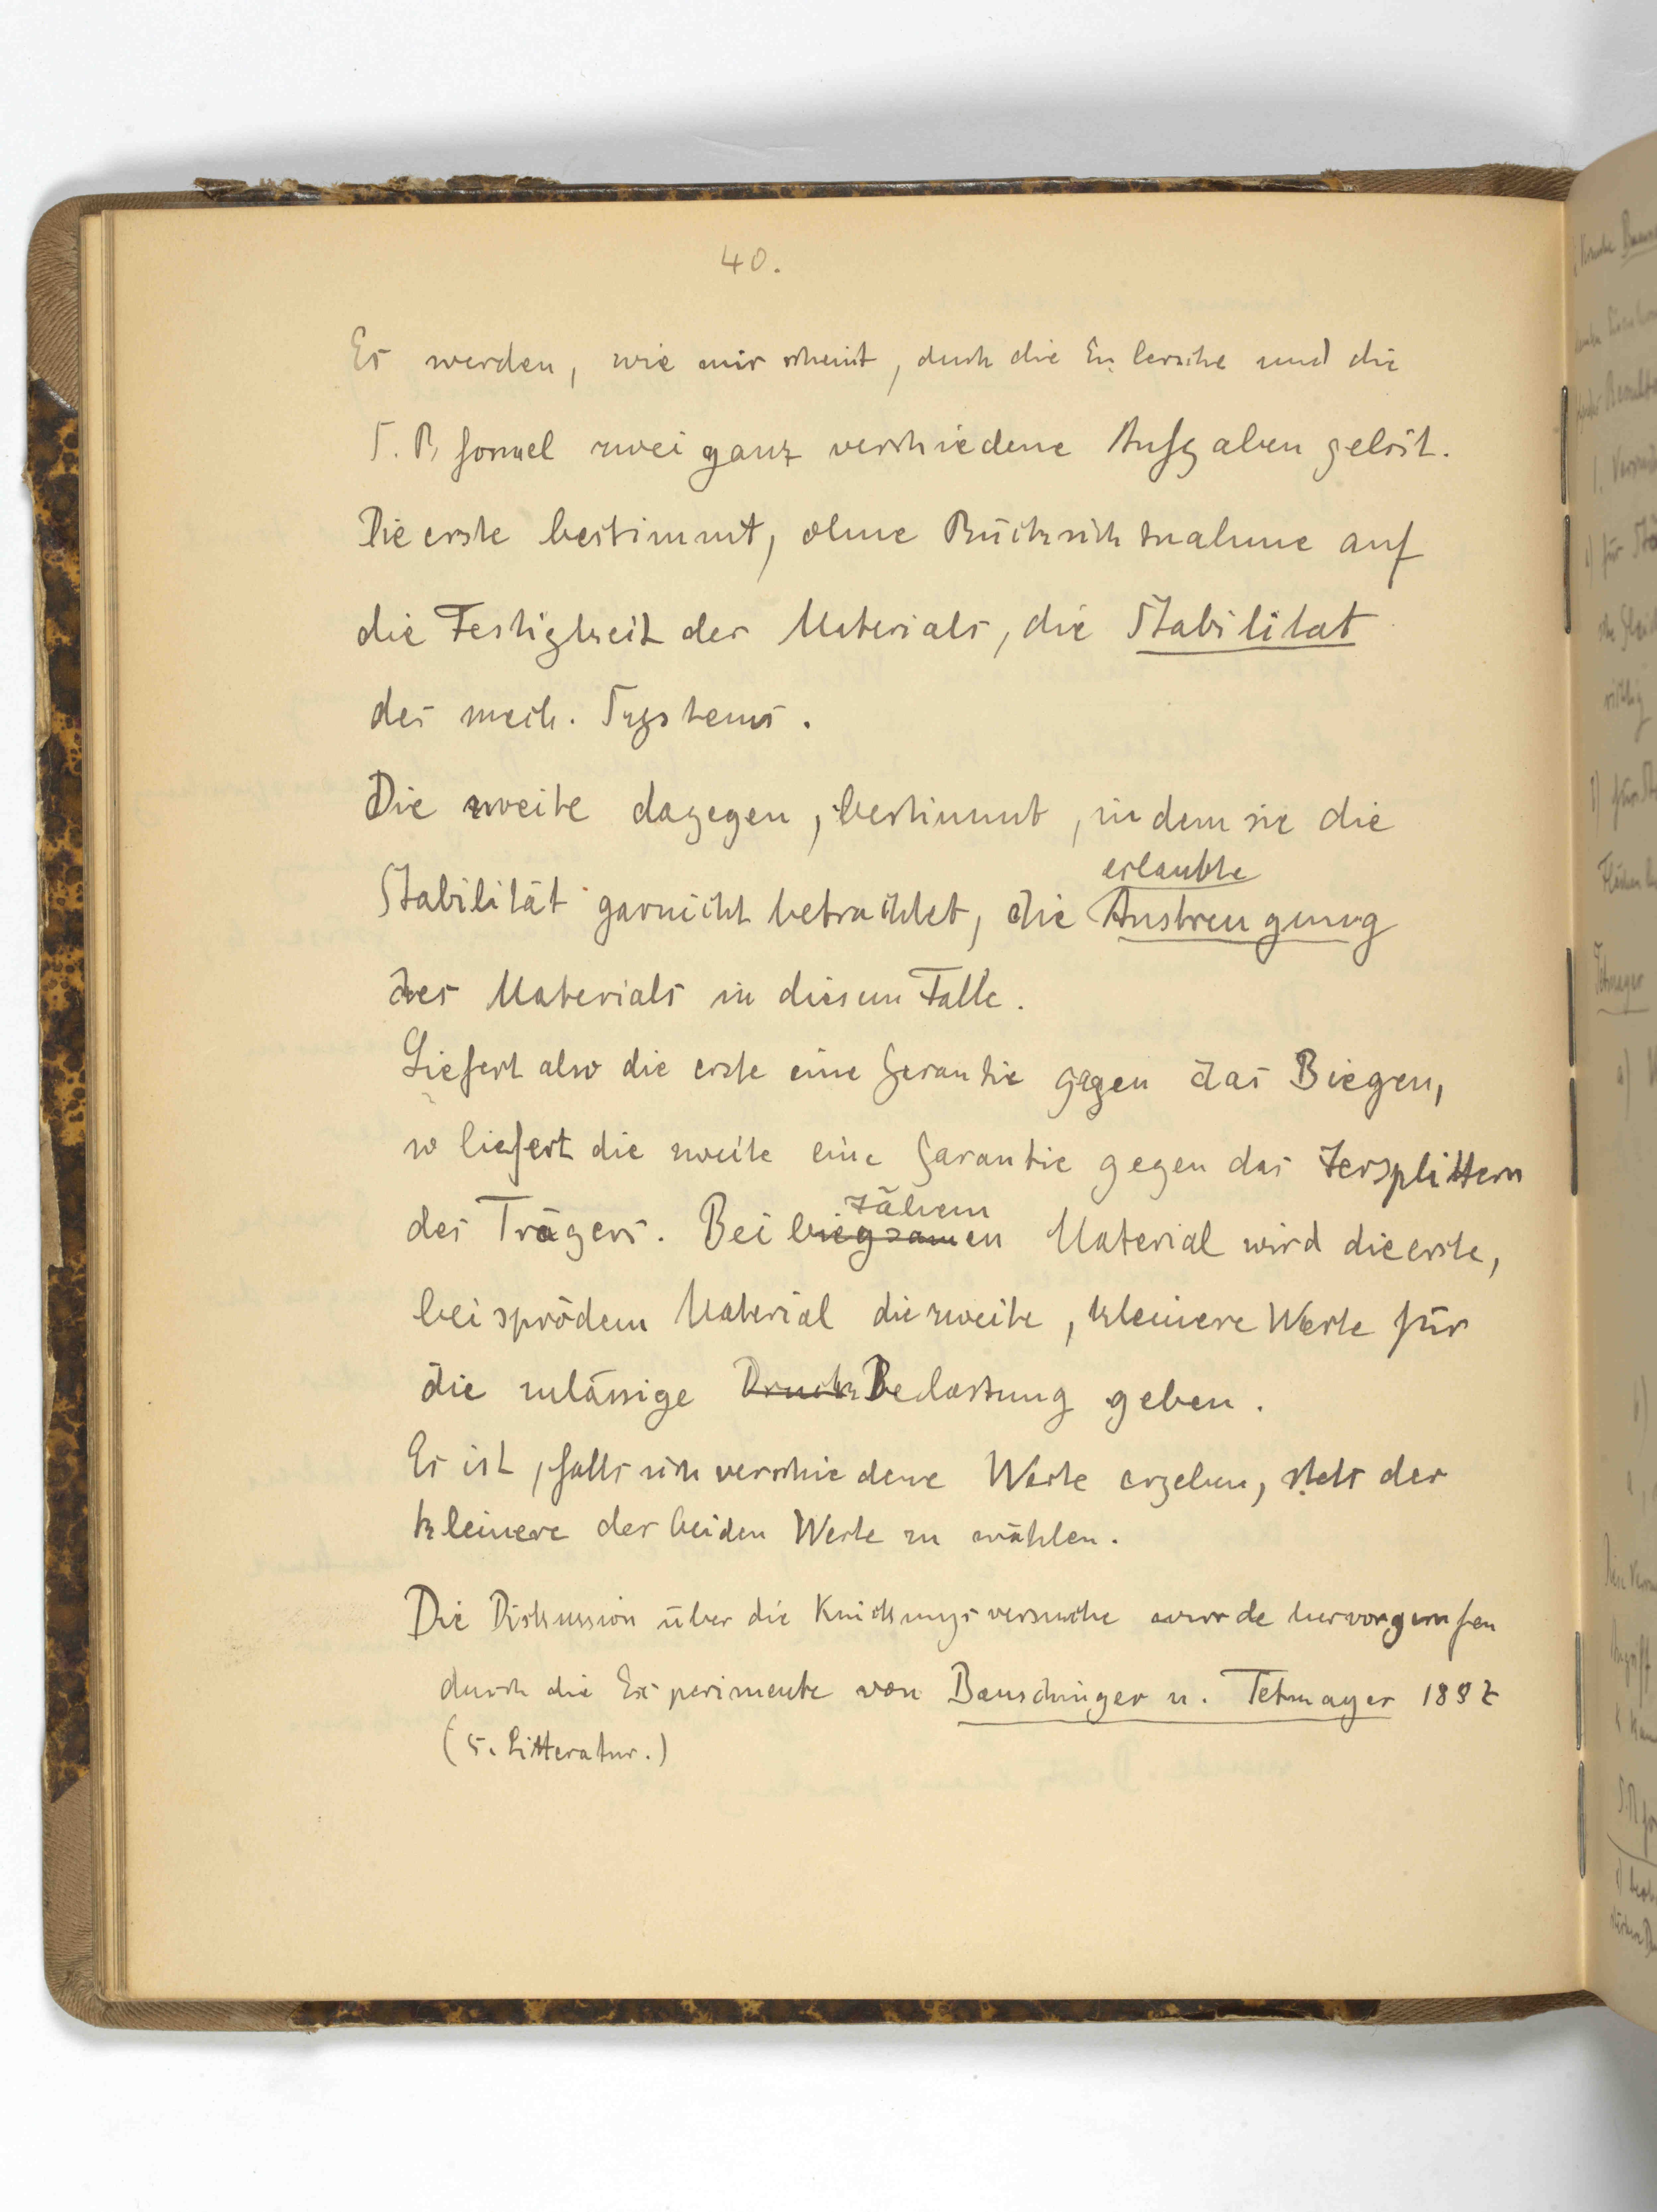 40.
Es werden, wie mir scheint, durch die Eulersche und die
S. R formel zwei ganz verschiedene Aufgaben gelöst.
Die erste bestimmt, ohne Rücksichtnahme auf
die Festigkeit des Materials, die Stabilitat
des mech. Systems.
Die zweite dagegen, bestimmt, indem sie die
erlaubte
Stabilität garnicht betrachtet, die Anstrengung
des Materials in diesem Falle.
Liefert also die erste eine Garantie gegen das Biegen,
so liefert die zweite eine Garantie gegen das Zersplittern
zähem
des Trägers. Bei biegsamen Material wird die erste,
bei sprödem Material die zweite, kleinere Werte für
die zulässige Druck Belastung geben.
Es ist, falls sich verschiedene Werte ergeben, stets der
kleinere der beiden Werte zu wählen.
Die Diskussion über die Knickungsversuche wurde hervorgerufen
durch die Experimente von Bauschinger u. Tetmayer 1887
(S. Litteratur.)